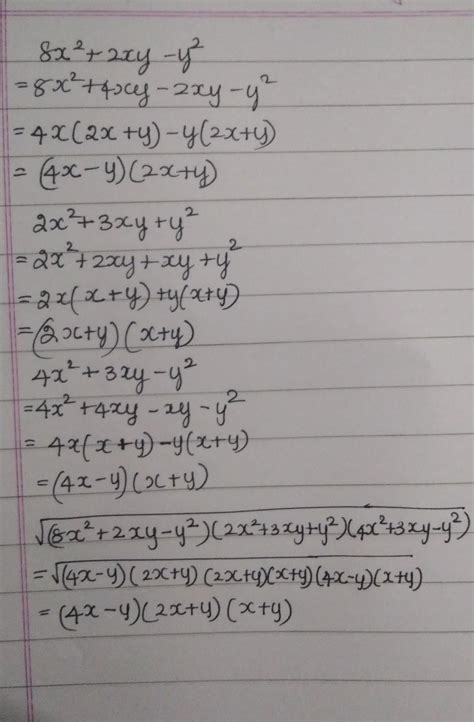 8x²+2xy-y²
=8x²+4xy-2xy-y²
=4x(2x+y)-y(2x+y)
=(4x-y)(2x+y)
2x²+3xy+y²
=2x²+2xy+xy+y²
=2x(x+y)+y(x+y)
=(2x+y)(x+y)
4x²+3xy-y²
=4x²+4xy-xy-y²
=4x(x+y)-y(x+y)
=(4x-y)(x+y)
√(8x²+2xy-y²)(2x²+3xy+y²)(4x²+3xy-y²)
=√(4x-y)(2x+y)(2x+y)(x+y)(4x-y)(x+y)
=(4x-y)(2x+y)(x+y)